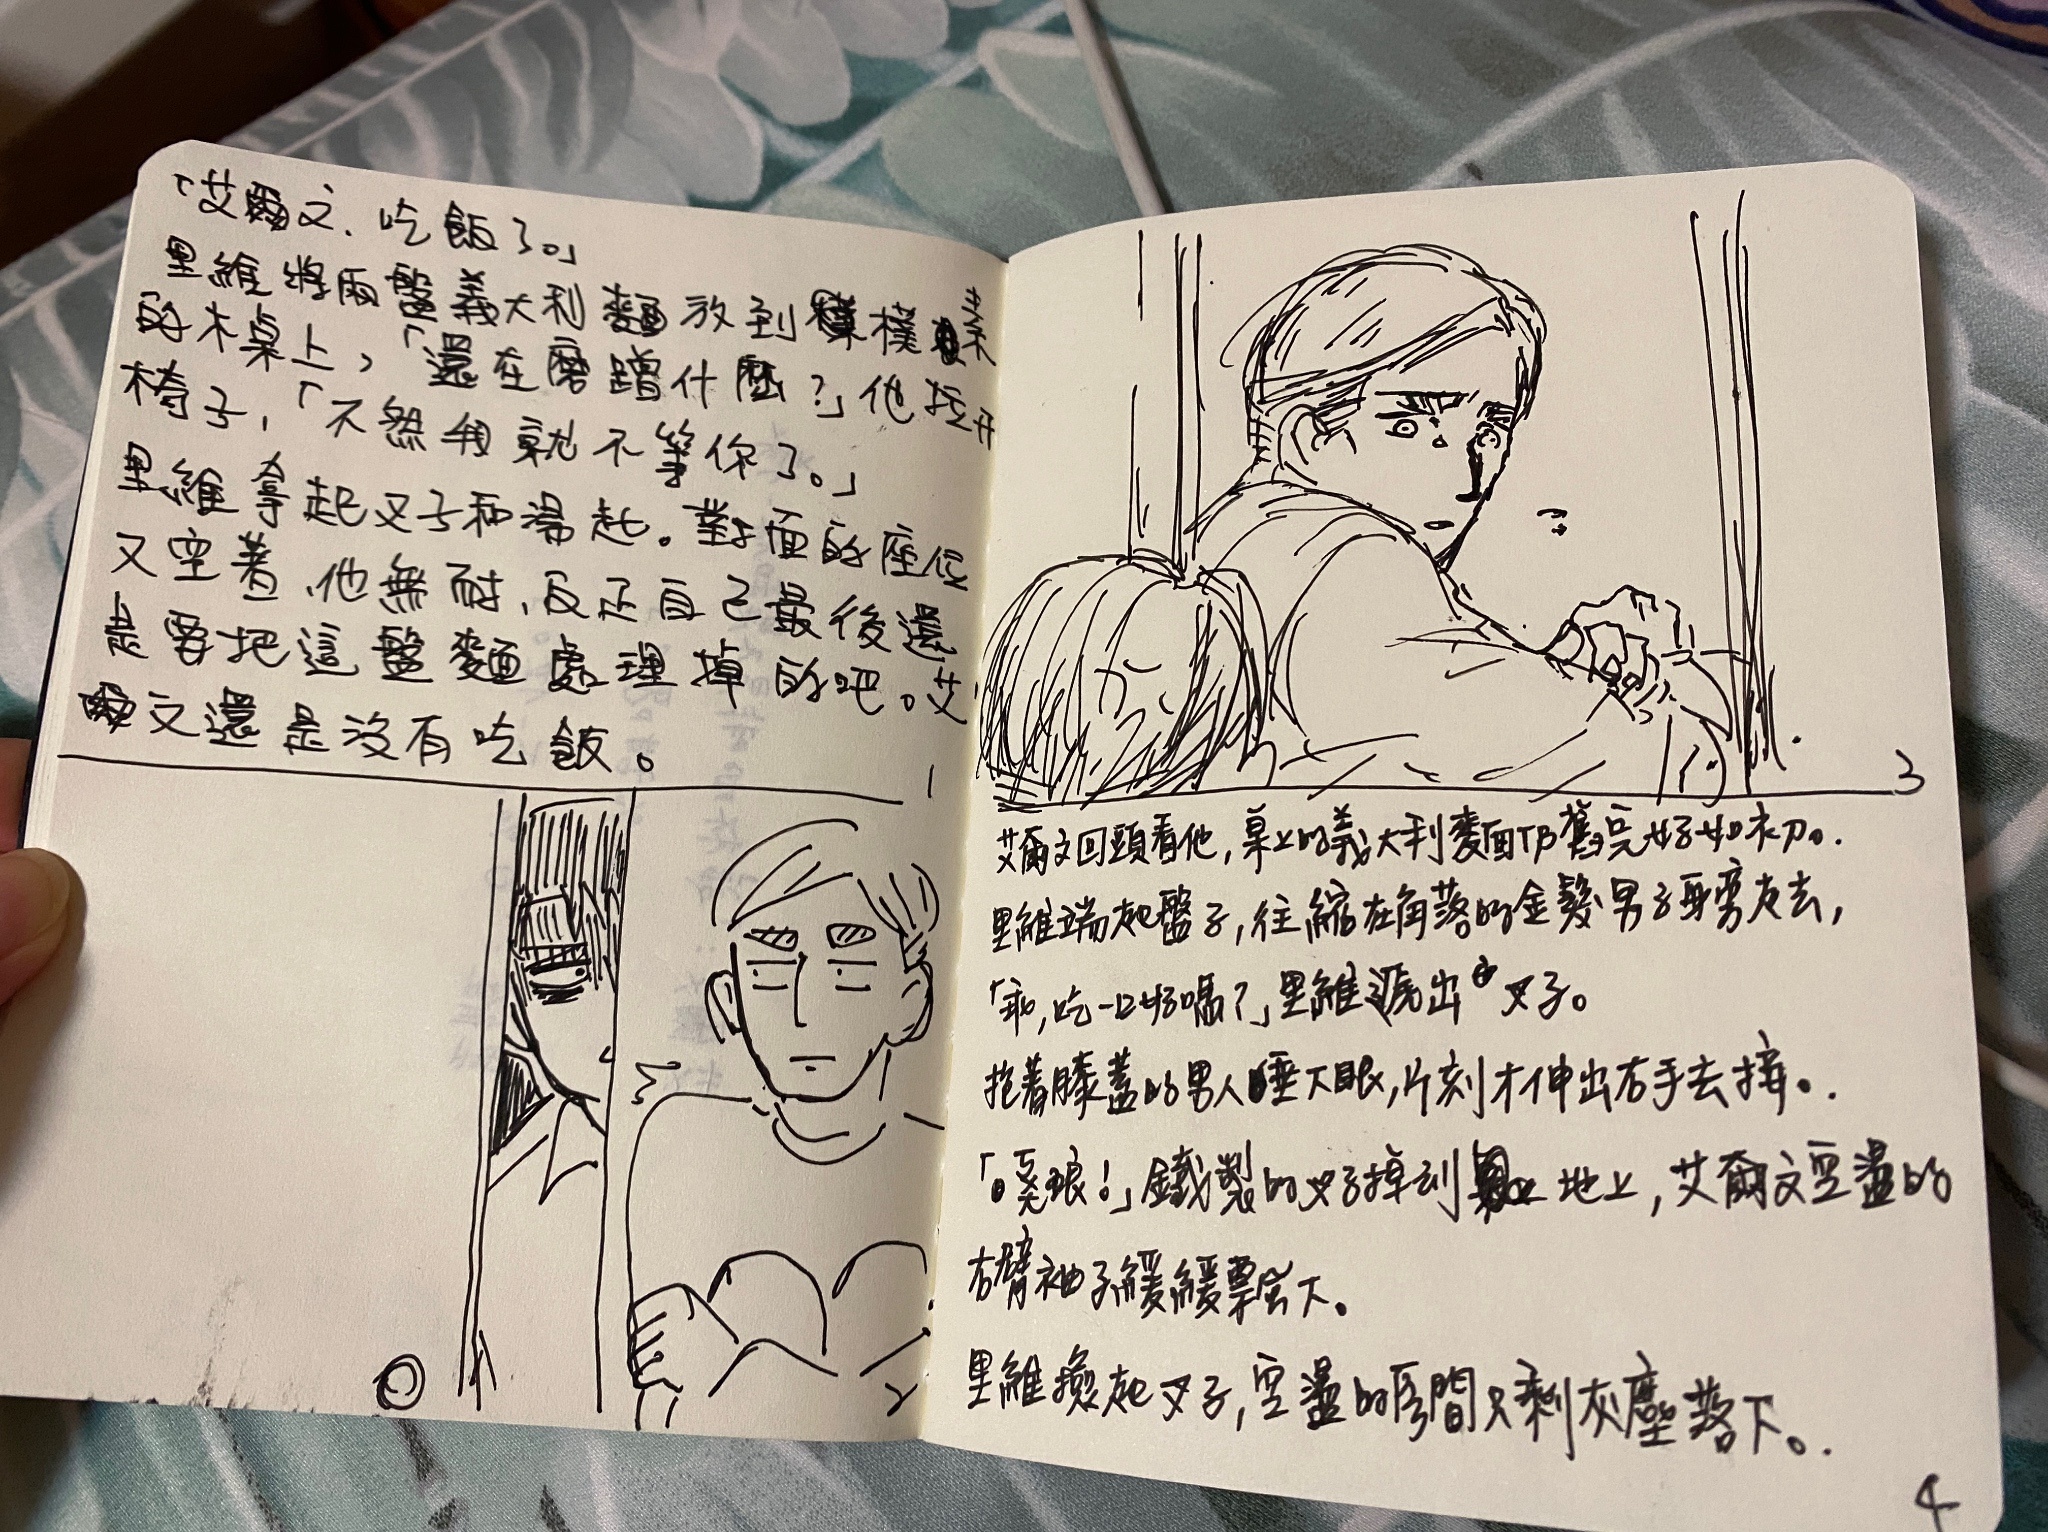 「艾爾文、吃飯了。」
里維將兩盤義大利麵放到樸素
的木桌上，「還在磨蹭什麼？」他拉開
椅子，「不然我就不等你了。」
里維拿起叉子和湯匙。對面的座位
又空著，他無耐，反正自己最後還
是要把這盤麵處理掉的吧。艾
爾文還是沒有吃飯。
1
2
3
艾爾文回頭看他，桌上的義大利麵仍舊完好如初。
里維端起盤子，往縮在角落的金髮男子身旁走去，
「乖，吃一口好嗎？」里維遞出叉子。
抱著膝蓋的男人垂下眼，片刻才伸出右手去接。
「哐啷！」鐵製的叉子掉到地上，艾爾文空盪的
右臂袖子緩緩飄落下。
里維撿起叉子，空盪的房間只剩灰塵落下。
4